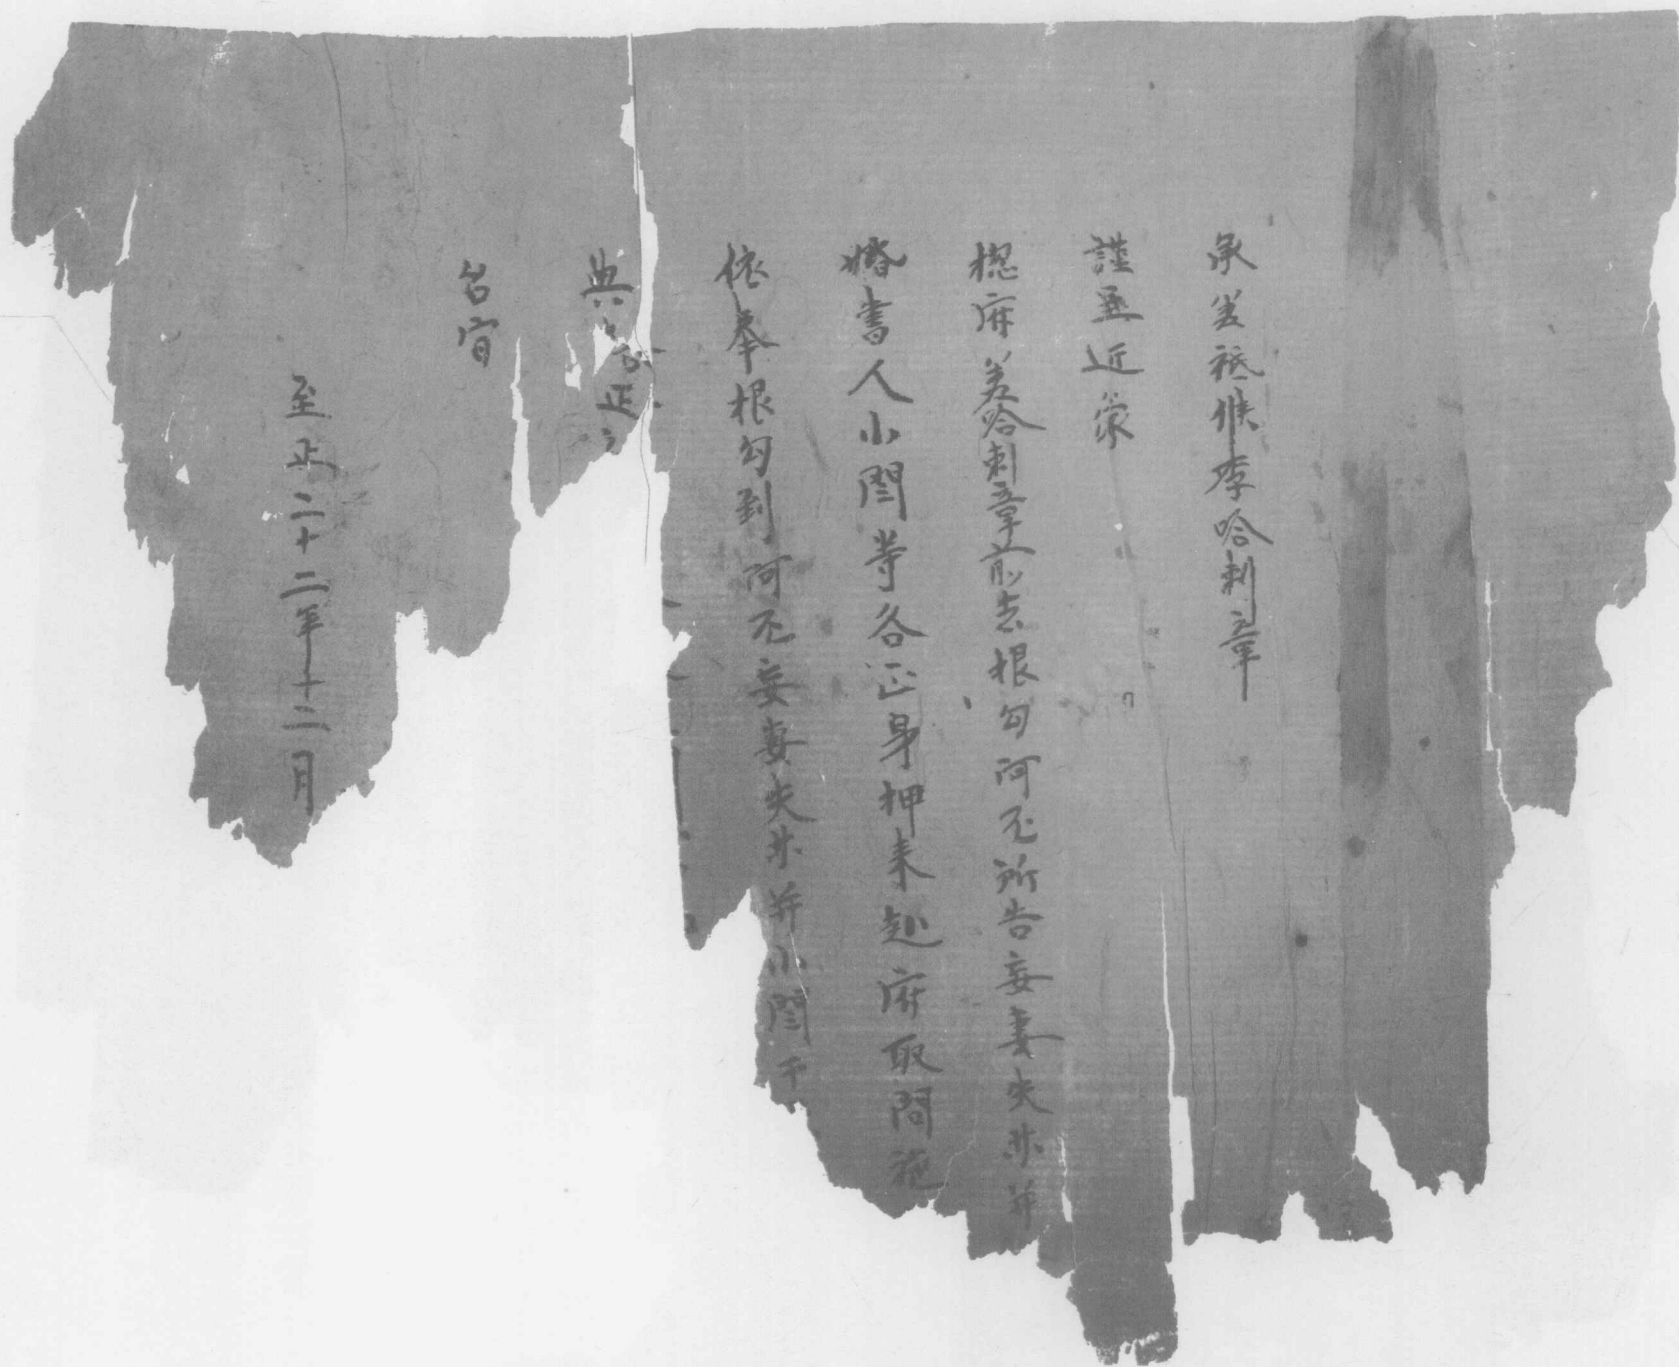 承差祗候李哈剌章
謹呈近蒙
揔府差哈剌章前去根勾阿兀所告妾妻失林并
婚書人小閆等各正身押来赴府取問施
依奉根勾到阿兀妾妻失林并小閆干
典
正
台旨
至正二十二年十二月